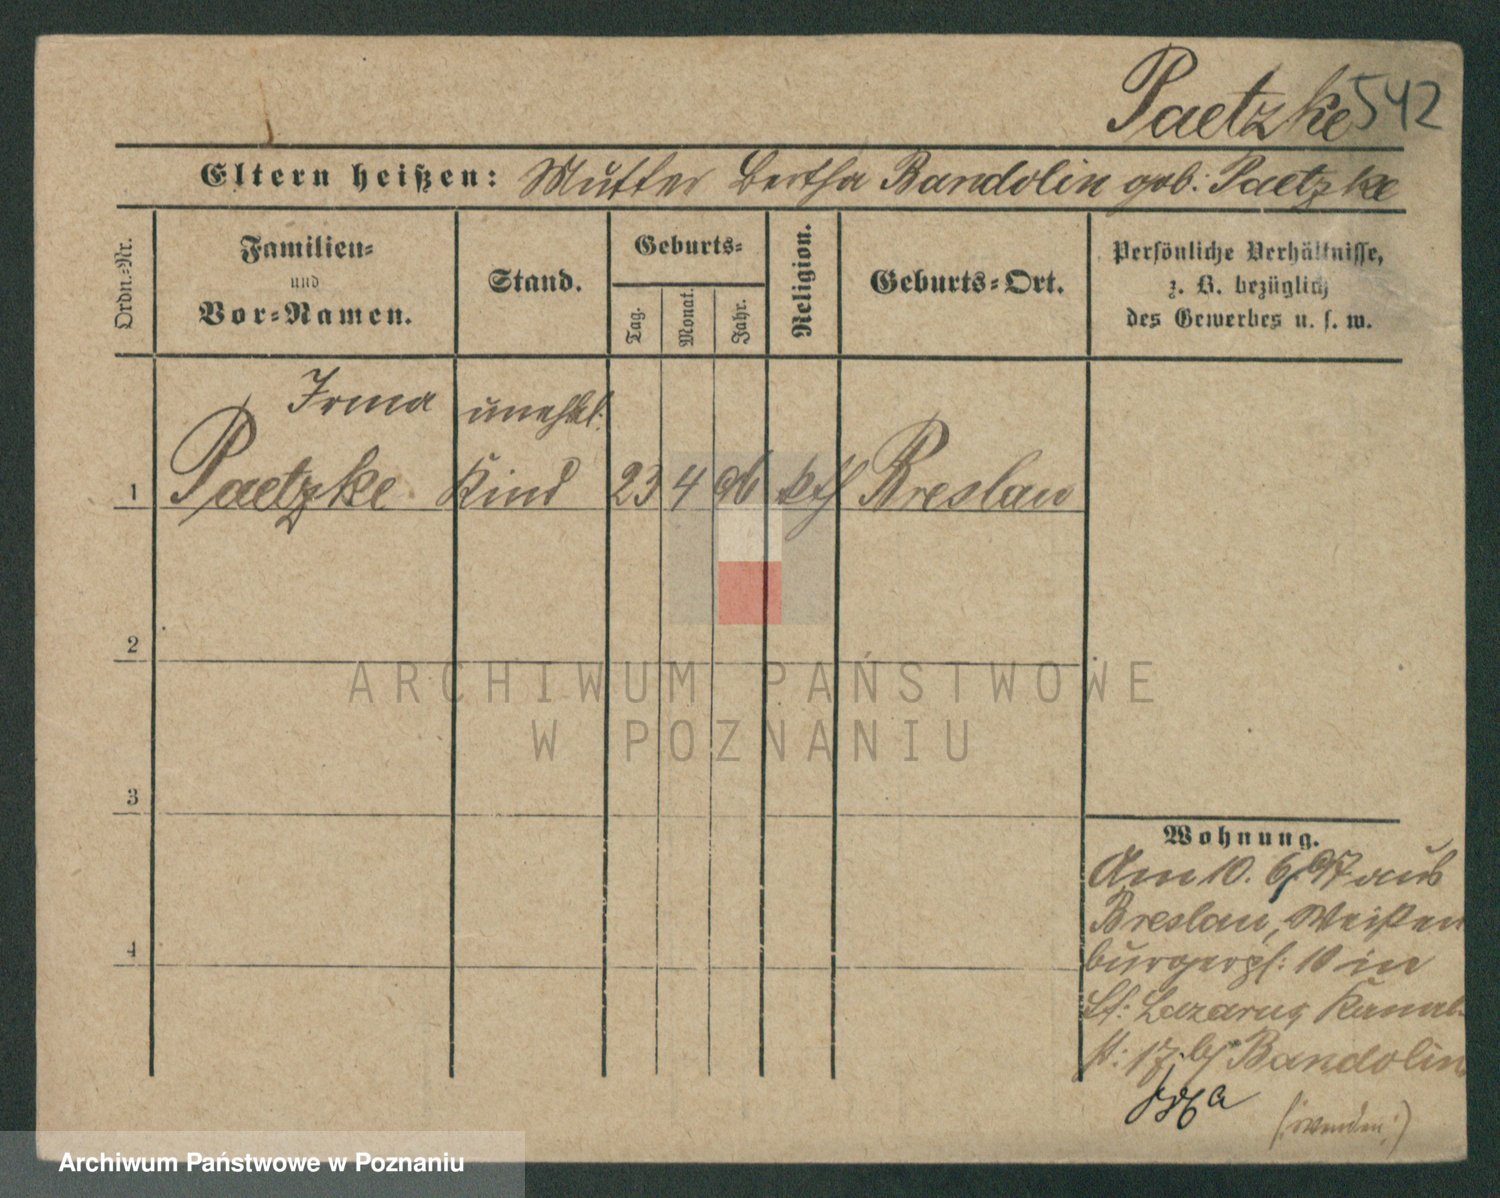 Paetzke 542
Eltern heißen: Mutter Bertha Bandolin geb: Paetzke
Ordn.=Nr.
Familien=
und
Vor=Namen.
Stand.
Geburts=
Tag.
Monat.
Jahr.
Religion.
Geburts=Ort.
Persönliche Verhältnisse,
z. B. bezüglich
des Gewerbes u. s. w.
Irma unehel:
1 Paetzke Kind 23 4 96 kth Breslau
2
3
4
Wohnung.
Am 10. 6. 97 aus
Breslau, Weißen
burgerpl: 10 in
St: Lazarus Kanal-
st: 17 b/ Bandolin
(:wenden:)
ARCHIWUM PAŃSTWOWE
W POZNANIU
Archiwum Państwowe w Poznaniu